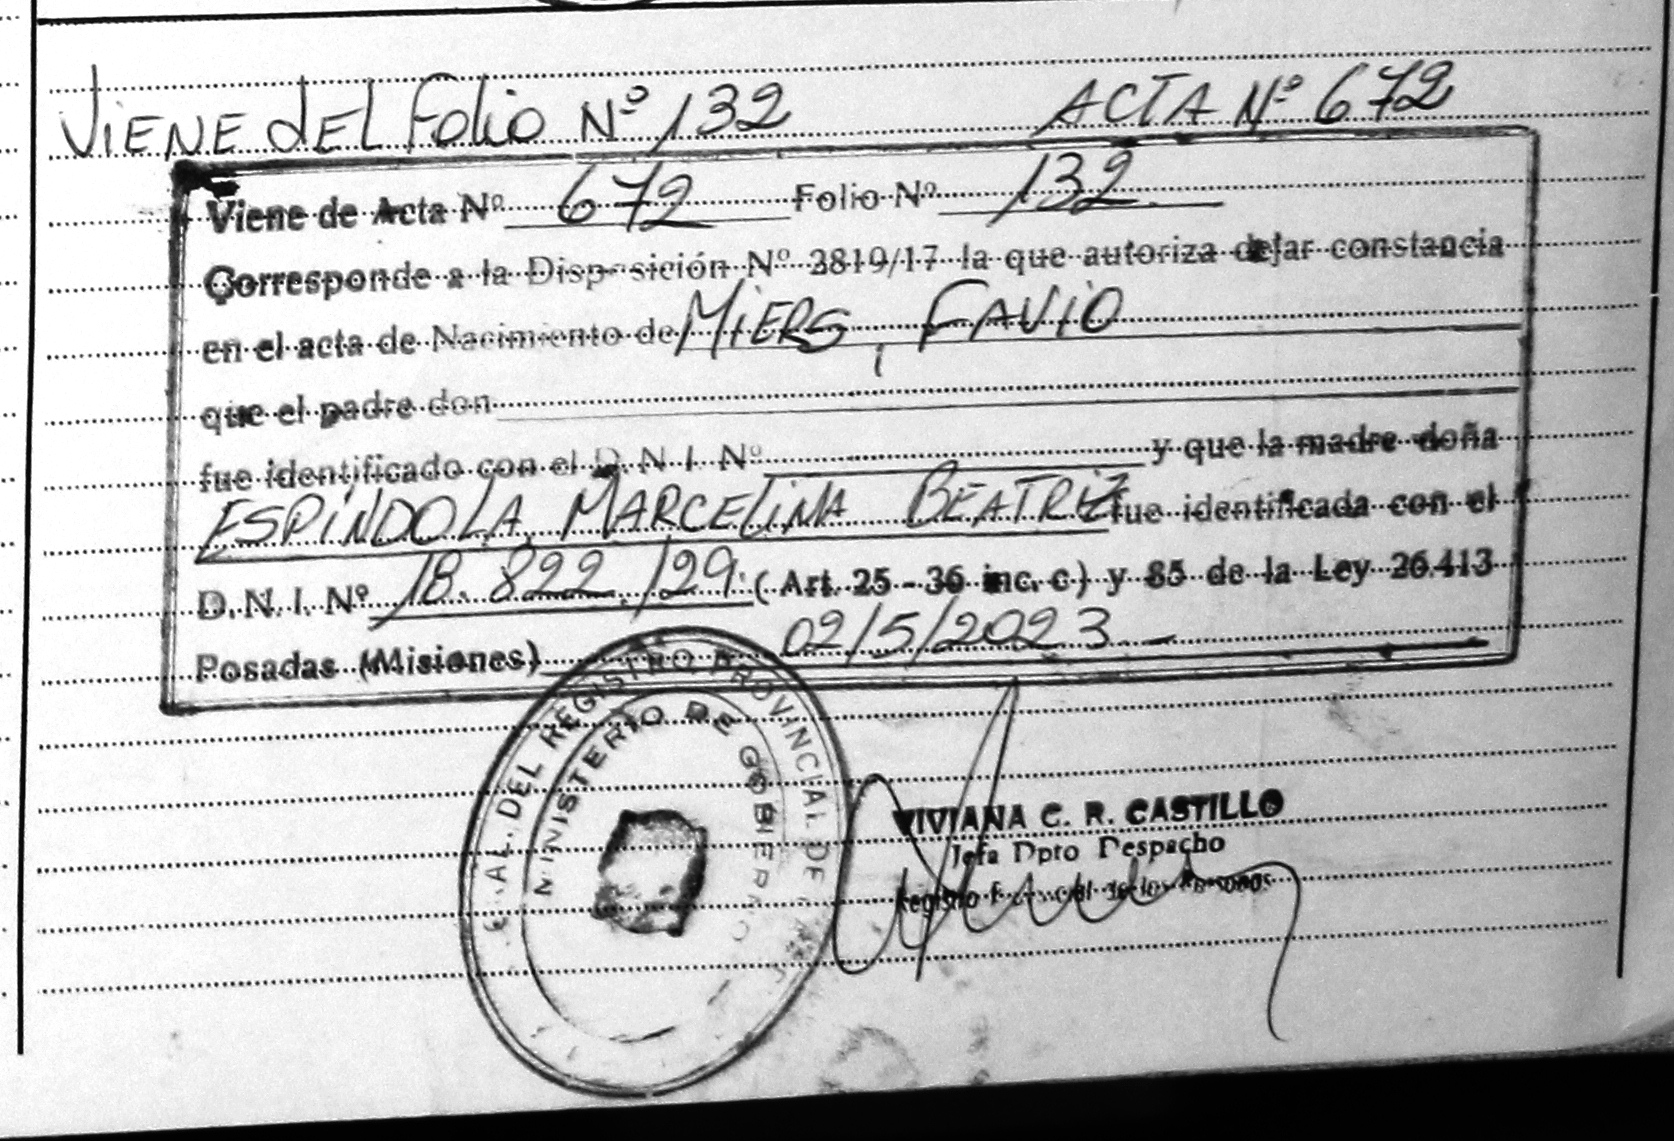 VIENE dEL Folio Nº 132 ACTA Nº 672
Viene de Acta Nº 672 Folio Nº 132
Corresponde a la Disposición Nº 2819/17 la que autoriza dejar constancia
en el acta de Nacimiento de MIERS, FAVIO
que el padre don
fue identificado con el D. N. I. Nº y que la madre doña
ESPINDOLA, MARCELINA BEATRIZ fue identificada con el
D. N. I. Nº 18.822.129 (Art. 25 - 36 inc. c) y 85 de la Ley 26.413
Posadas (Misiones) 02/5/2023 -
AL. DEL REGISTRO PROVINCIAL DE
MINISTERIO DE GOBIERNO
VIVIANA C. R. CASTILLO
Jefa Dpto Despacho
Registro de las Personas